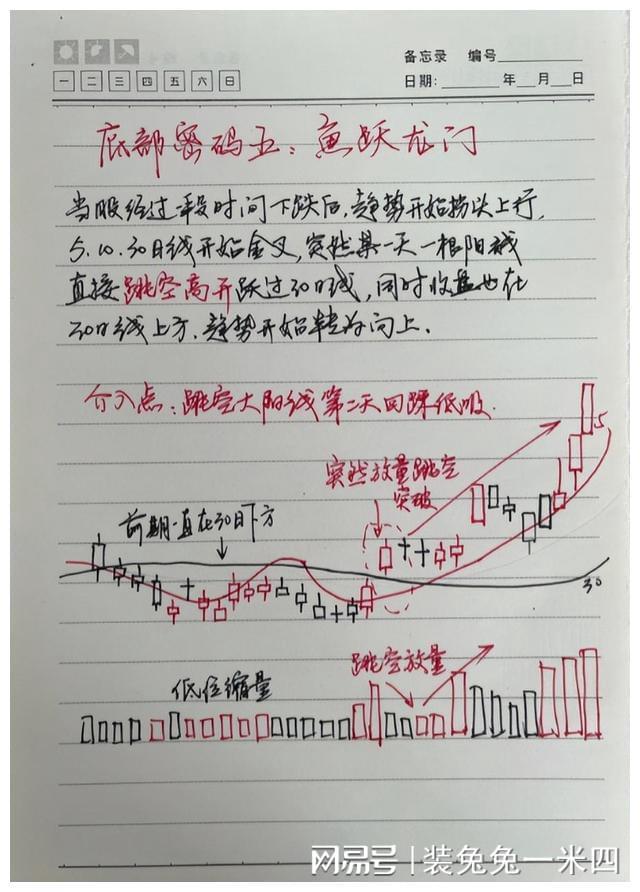 备忘录 编号
一 二 三 四 五 六 日
日期: 年 月 日
底部密码五:鱼跃龙门
当股经过一段时间下跌后,趋势开始拐头上行,
5.10.30日线开始金叉,突然某一天一根阳线
直接跳空高开跃过30日线,同时收盘也在
30日线上方.趋势开始转为向上.
介入点:跳空大阳线第二天回踩低吸.
突然放量跳空
突破
前期一直在30日下方
5
30
跳空放量
低位缩量
网易号 | 装兔兔一米四